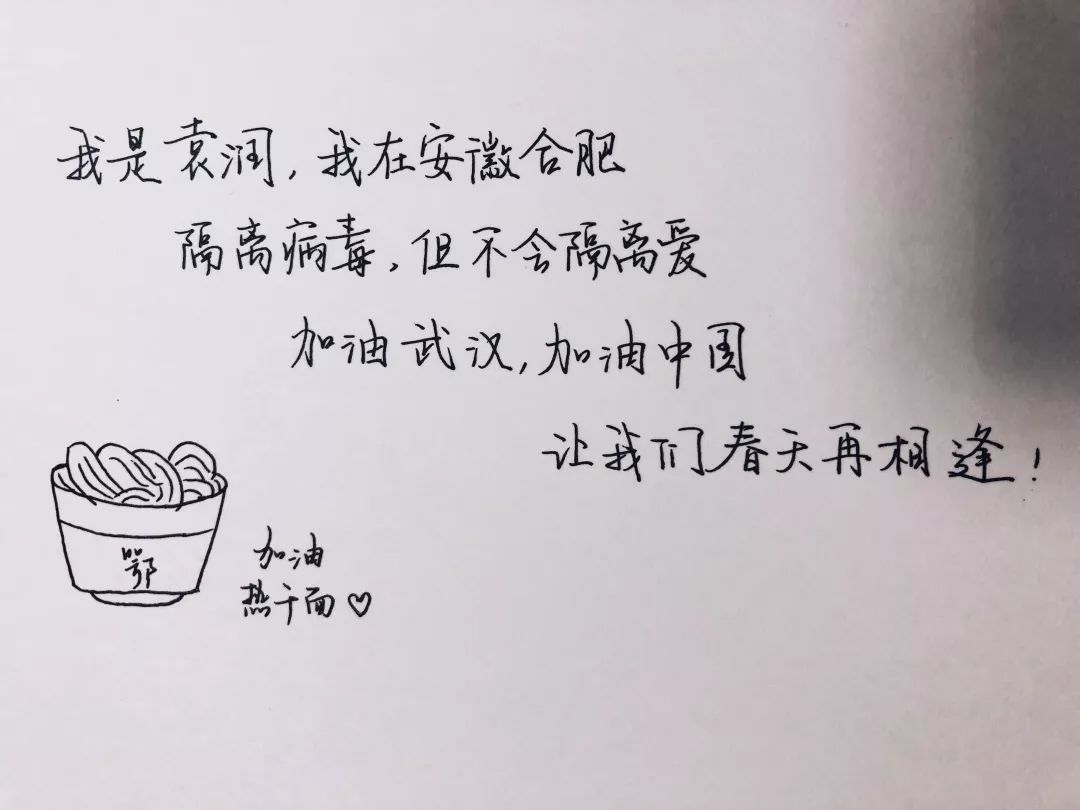 我是袁润，我在安徽合肥
隔离病毒，但不会隔离爱
加油武汉，加油中国
让我们春天再相逢！
鄂
加油
热干面♡